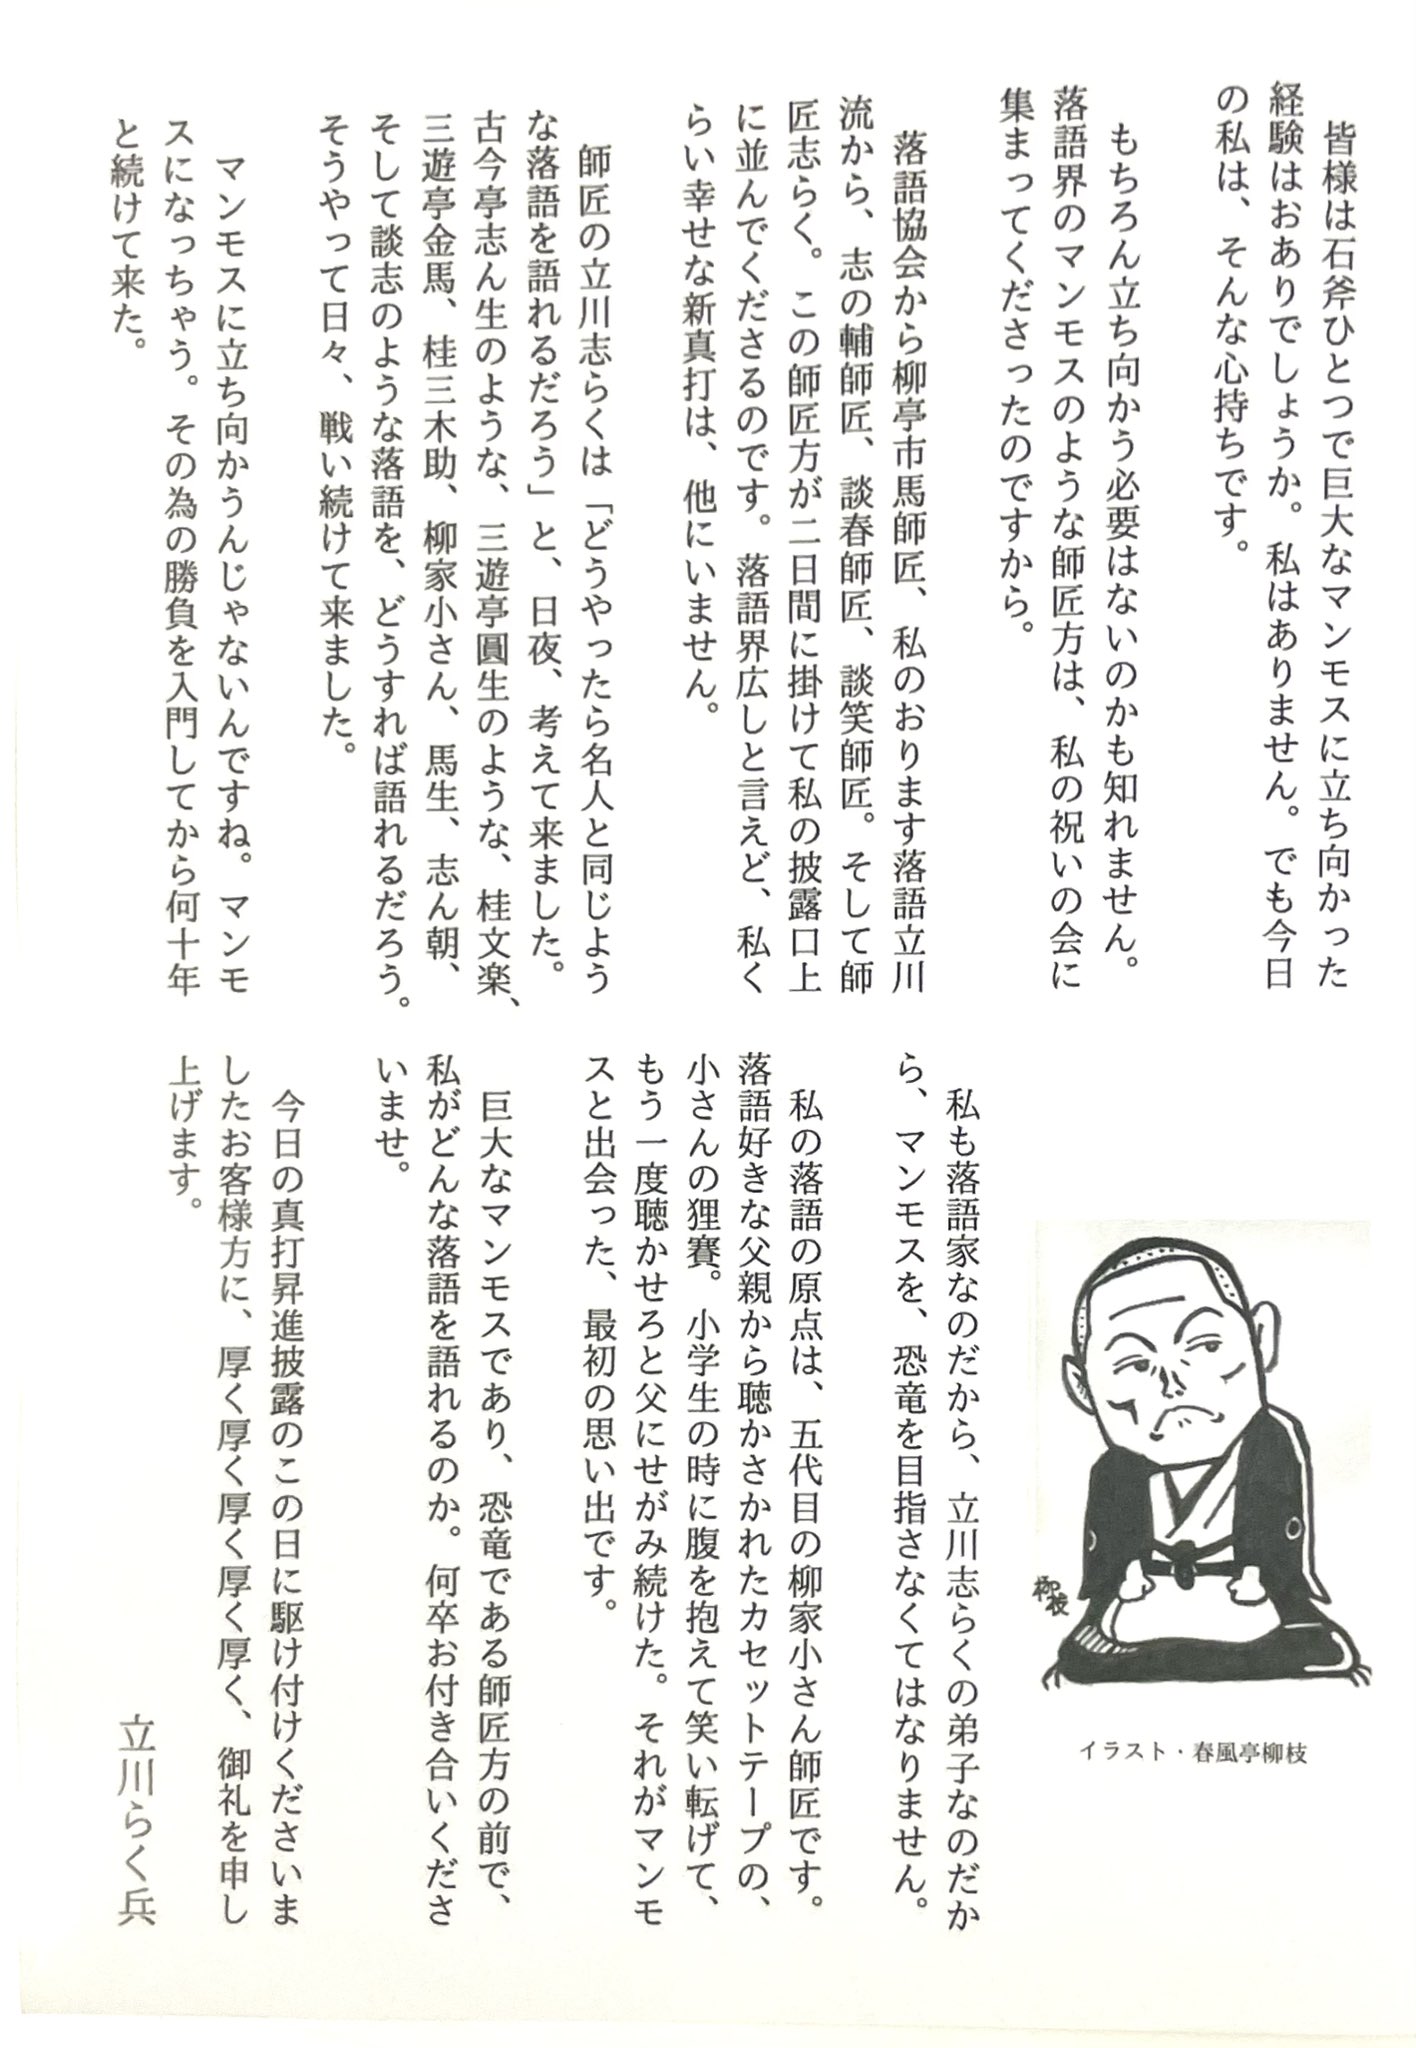 皆様は石斧ひとつで巨大なマンモスに立ち向かった
経験はおありでしょうか。私はありません。でも今日
の私は、そんな心持ちです。
もちろん立ち向かう必要はないのかも知れません。
落語界のマンモスのような師匠方は、私の祝いの会に
集まってくださったのですから。
落語協会から柳亭市馬師匠、私のおります落語立川
流から、志の輔師匠、談春師匠、談笑師匠。そして師
匠志らく。この師匠方が二日間に掛けて私の披露口上
に並んでくださるのです。落語界広しと言えど、私く
らい幸せな新真打は、他にいません。
師匠の立川志らくは「どうやったら名人と同じよう
な落語を語れるだろう」と、日夜、考えて来ました。
古今亭志ん生のような、三遊亭圓生のような、桂文楽、
三遊亭金馬、桂三木助、柳家小さん、馬生、志ん朝、
そして談志のような落語を、どうすれば語れるだろう。
そうやって日々、戦い続けて来ました。
マンモスに立ち向かうんじゃないんですね。マンモ
スになっちゃう。その為の勝負を入門してから何十年
と続けて来た。
私も落語家なのだから、立川志らくの弟子なのだか
ら、マンモスを、恐竜を目指さなくてはなりません。
私の落語の原点は、五代目の柳家小さん師匠です。
落語好きな父親から聴かされたカセットテープの、
小さんの狸賽。小学生の時に腹を抱えて笑い転げて、
もう一度聴かせろと父にせがみ続けた。それがマンモ
スと出会った、最初の思い出です。
巨大なマンモスであり、恐竜である師匠方の前で、
私がどんな落語を語れるのか。何卒お付き合いくださ
いませ。
今日の真打昇進披露のこの日に駆け付けくださいま
したお客様方に、厚く厚く厚く厚く厚く、御礼を申し
上げます。
立川らく兵
柳枝
イラスト・春風亭柳枝